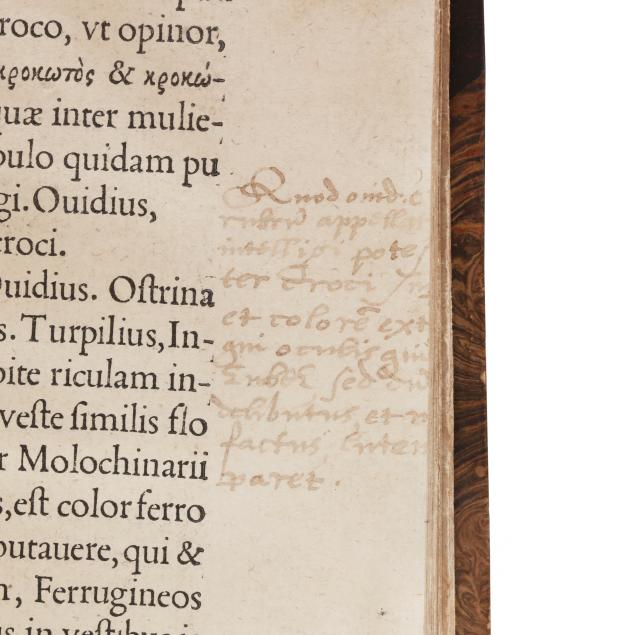 roco, vt opinor,
κροκωτὸς & κροκώ-
quæ inter mulie-
pulo quidam pu
gi. Ouidius,
croci.
Ouidius. Oſtrina
s. Turpilius, In-
pite riculam in-
veſte ſimilis flo
r Molochinarii
s, eſt color ferro
putauere, qui &
n, Ferrugineos
us in veſtibus
Quod ouid. e
rubrũ appellat
intelligi pote
ter croci
et colorẽ ext
qui oculis qui
rubet, sed
delibutus, et
factus, luten
paret.